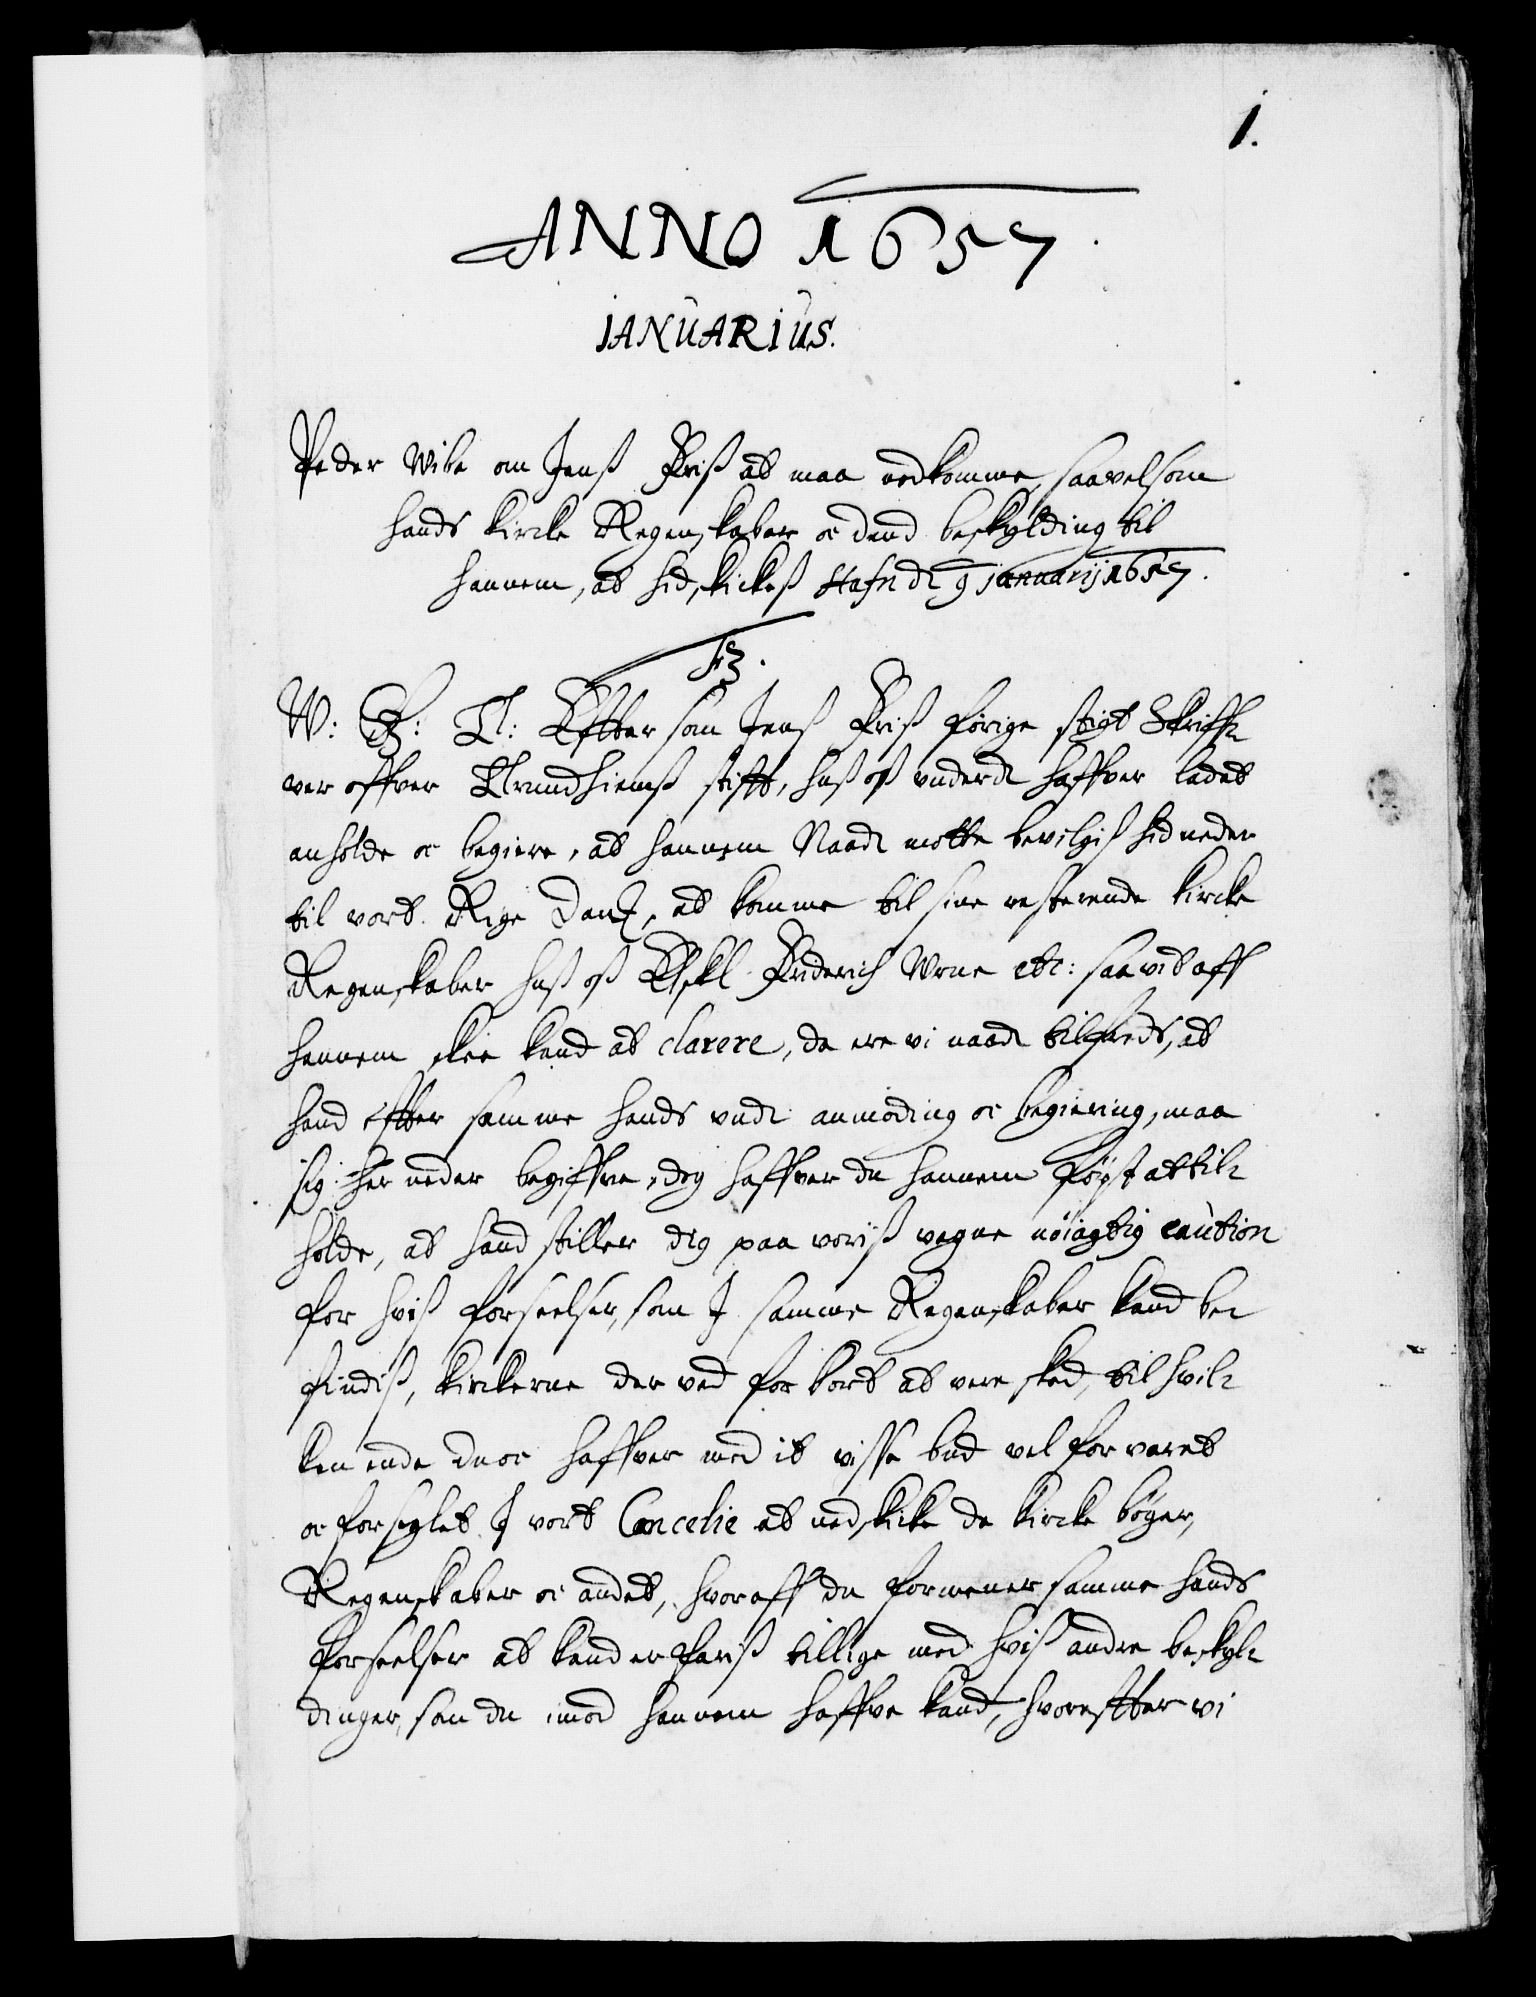 1.
ANNO 1657.
IANUARIUS.
Peder Wibe om Jenß Friß at maa nedkomme, saavelsom
hands Kircke Regenskaber oc dend beskylding til
hannem, at hidskickeß Hafn dl 9 januarij 1657.
F3.
W: G: T: Effter som Jenß Friß forige stigt Skriff-
ver offver Trundhiemß stifft, hoß oß underdl haffver ladet
anholde oc begiere, at hannem Naadl motte bevilgiß hid neder
til vort Rige Danm, at komme til sine resterende Kircke
Regenskaber hoß oß Elskl Friderich Urne etc: saavit aff
hannem skee kand at clarere, da ere vi naadl tilfreds, at
hand effter samme hands undl anmoding oc begiering, maa
sig her neder begiffve, dog haffver du hannem først attil-
holde, at hand stiller dig paa voriß vegne nöiagtig caution
for hviß forseelser, som J samme Regenskaber kand be-
findiß, kirckerne der ved for kort at vere sked, til hvil-
ken ende du oc haffver med it visse bud vel forvaret
oc forseglet J vort Cancelie at nedskicke de Kircke bøger,
Regenskaber oc andet, hvoraff du formener samme hands
forseelser at kand erfariß tillige med hviß andre beskyl-
dinger, som du imod hannem haffve kand, hvoreffter vi